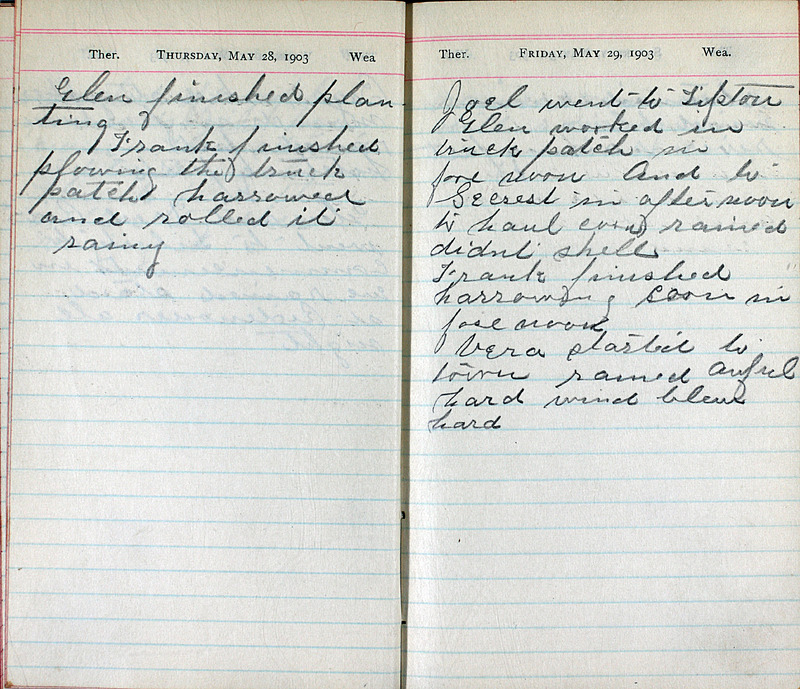 Ther. Thursday, May 28, 1903 Wea
Glen finished plan-
ting
Frank finished
plowing the truck
patch harrowed
and rolled it
rainy
Ther. Friday, May 29, 1903 Wea.
Joel went to Tipton
Glen worked in
truck patch in
fore noon And to
Secrest in after noon
to haul corn rained
didnt shell
Frank finished
harrowing corn in
fore noon
Vera started to
town rained awful
hard wind blew
hard